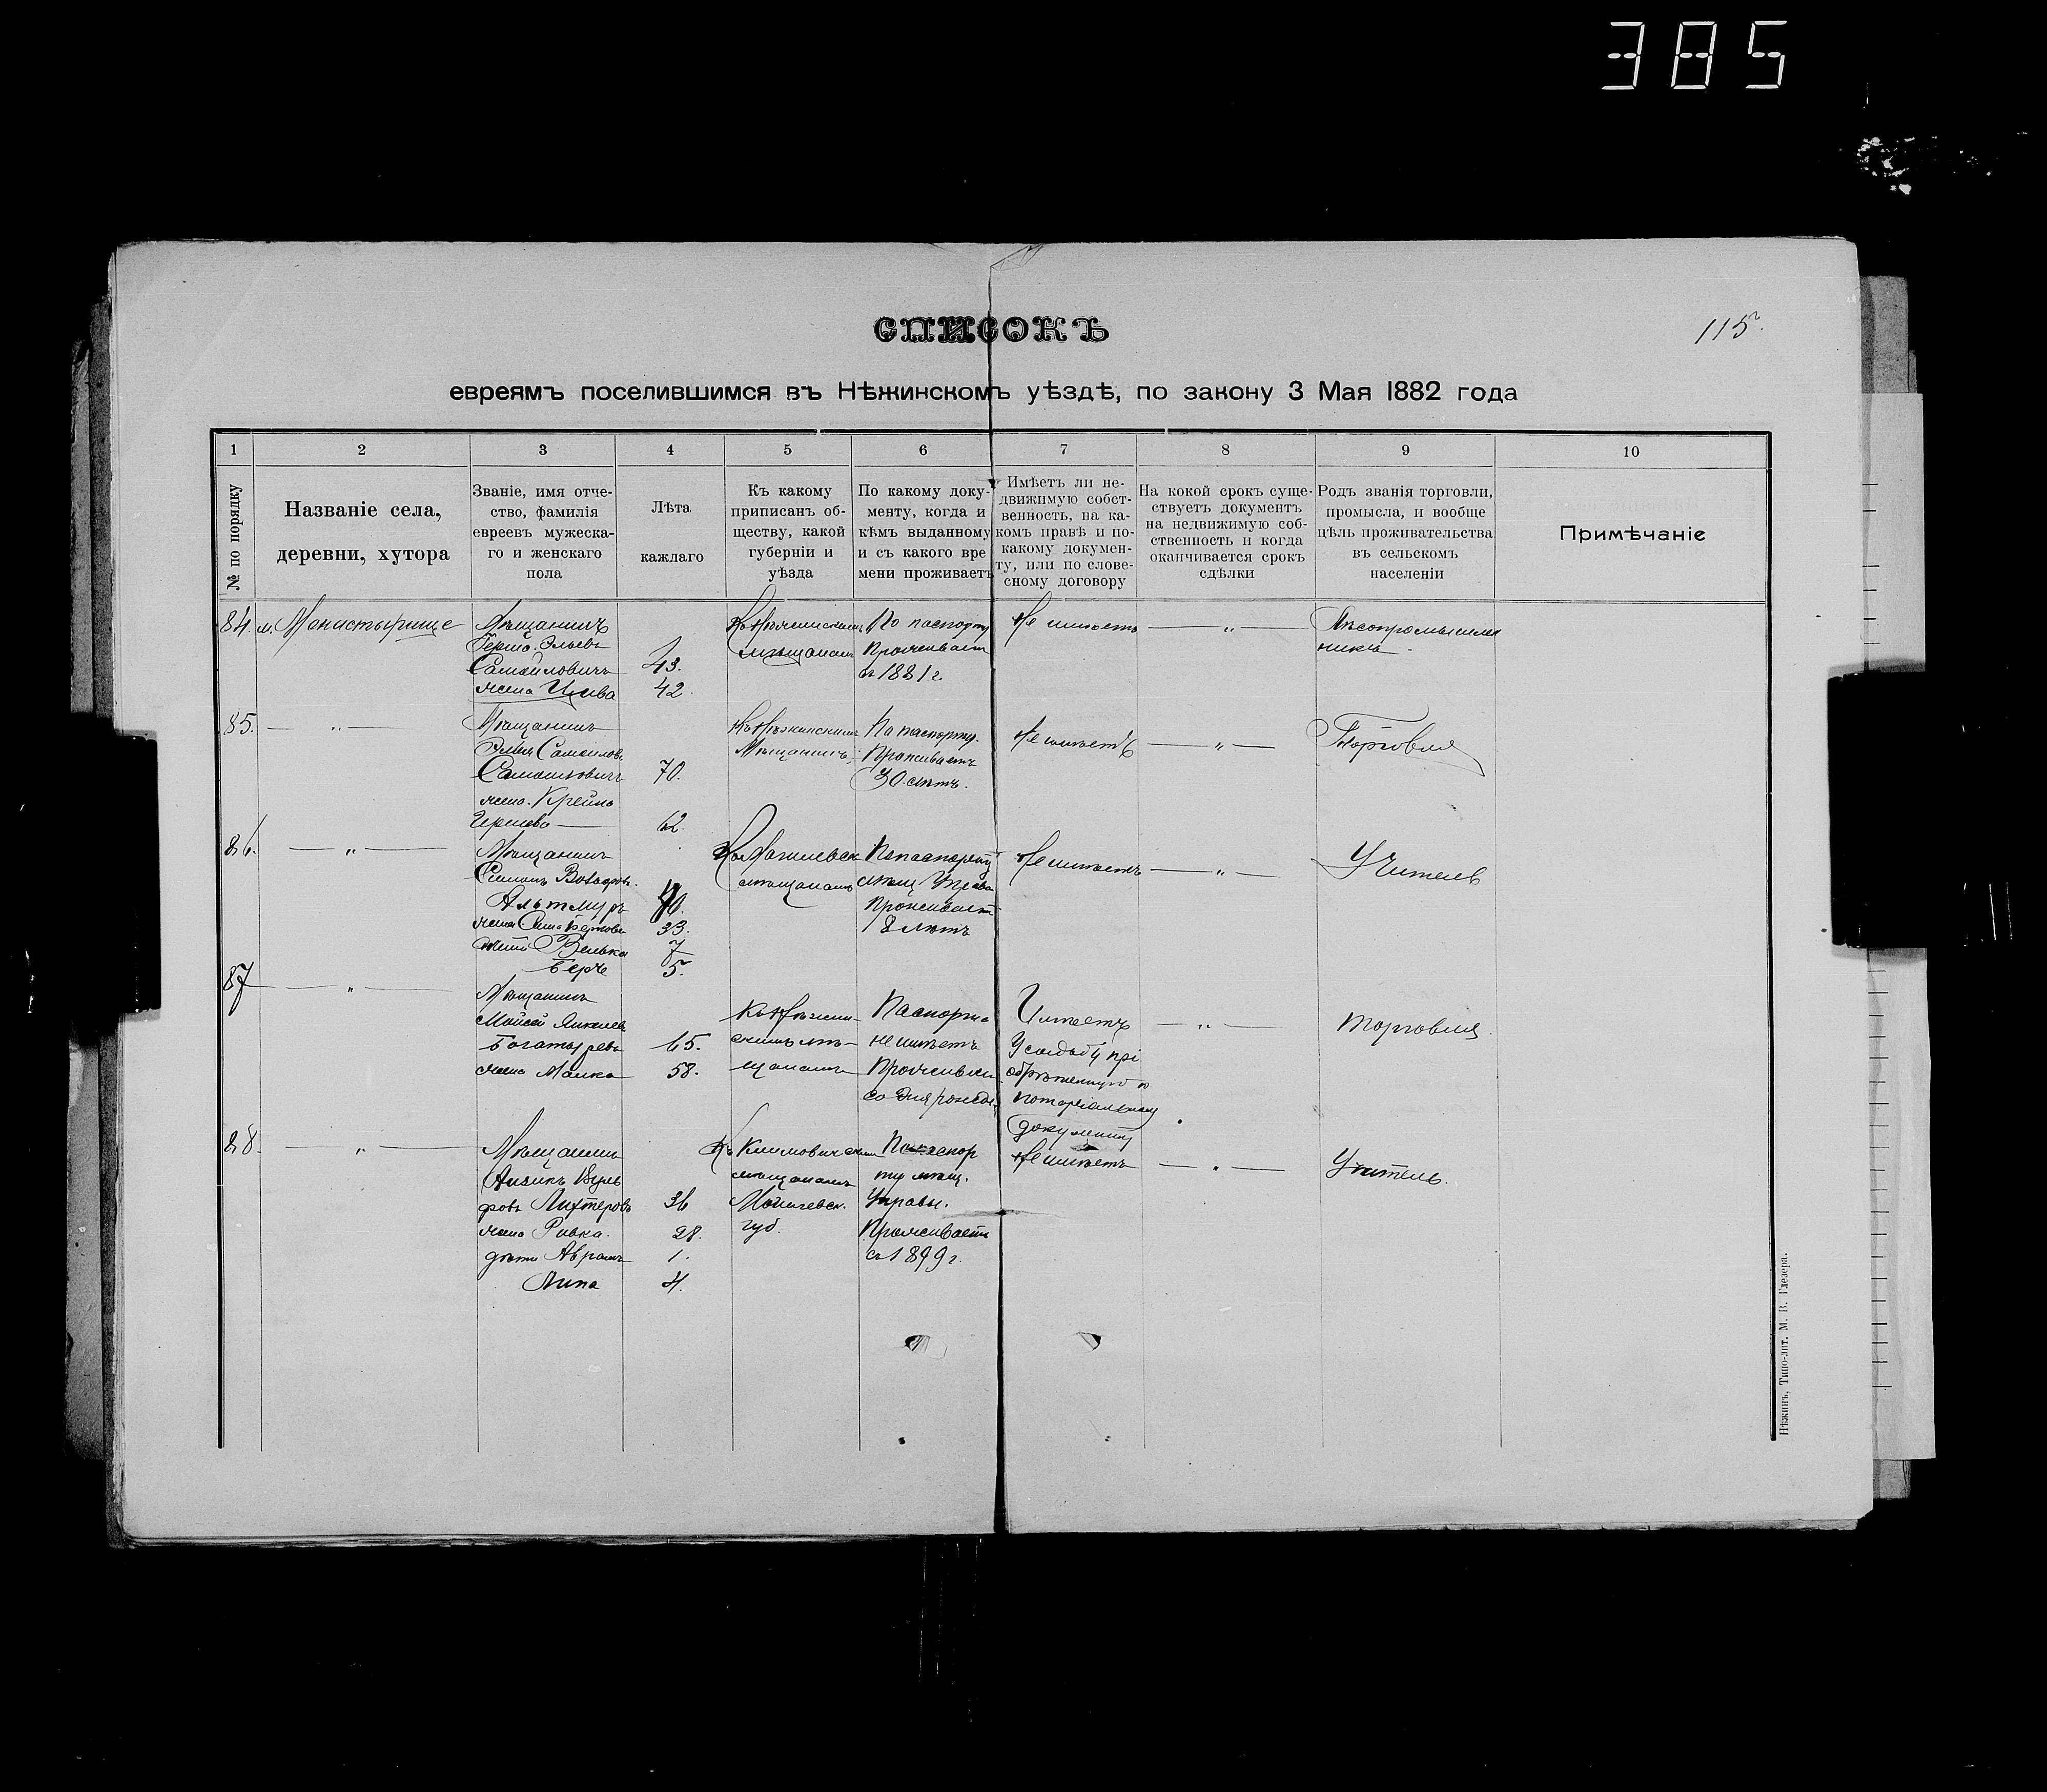 385
115
СПИСОКЪ
евреямъ поселившимся въ Нѣжинскомъ уѣздѣ, по закону 3 Мая 1882 года
1 2 3 4 5 6 7 8 9 10
№ по порядку
Названіе села,
деревни, хутора
Званіе, имя отче-
ство, фамилія
евреевъ мужеска-
го и женскаго
пола
Лѣта
каждаго
Къ какому
приписанъ об-
ществу, какой
губерніи и
уѣзда
По какому доку-
менту, когда и
кѣмъ выданному
и съ какого вре
мени проживаетъ
Имѣетъ ли не-
движимую собст-
венность, на ка-
комъ правѣ и по-
какому докумен-
ту, или по слове-
сному договору
На кокой срокъ суще-
ствуетъ документъ
на недвижимую соб-
ственность и когда
оканчивается срокъ
сдѣлки
Родъ званія торговли,
промысла, и вообще
цѣль проживательства
въ сельскомъ
населеніи
Примѣчаніе
84.
м. Монастырище
Мѣщанинъ
Гершо. Эльевъ
Самойловичъ 43.
жена Цива 42.
Къ Нѣжинскимъ
мѣщанамъ
По паспорту
проживаетъ
съ 1881 г
Не имѣетъ
— „ —
Лѣсопромышлен
никъ
85.
— „ —
Мѣщанинъ
Элья Самойлов.
Самойловичъ 70.
жена. Крейна
Гершева — 62.
Къ Нѣжинскимъ
Мѣщанинъ
По паспорту.
Проживаетъ
30 лѣтъ.
Не имѣетъ
— „ —
Торговля
86.
— „ —
Мѣщанинъ
Симонъ
Альтшуръ 40.
жена 33.
дѣти Велька 7
Берче 5.
Къ Могилевск
мѣщанамъ
По паспорту
мѣщ Управы
проживаетъ
8 лѣтъ
Не имѣетъ
— „ —
Учитель
87
— „ —
Мѣщанинъ
Мойсей Янкелев
Богатыревъ 65.
жена Малка 58.
Къ Нѣжин-
скимъ мѣ-
щанамъ
Паспорта
не имѣетъ
Проживаетъ
со дня рожд.
Имѣетъ
Усадьбу прі
обрѣтенную по
нотаріальному
документу
— „ —
торговля.
88.
— „ —
Мѣщанинъ
Айзикъ Вуль
фовъ Лихтеровъ 36
жена Ривка. 28.
дѣти Аврамъ 1.
Липа 4.
Къ Климовичскимъ
мѣщанамъ
Могилевск.
губ.
По паспор
ту мѣщ.
Управы.
Проживаетъ
съ 1899 г.
Не имѣетъ
— „ —
Учитель.
Нѣжинъ, Типо-лит. М. В. Глезера.